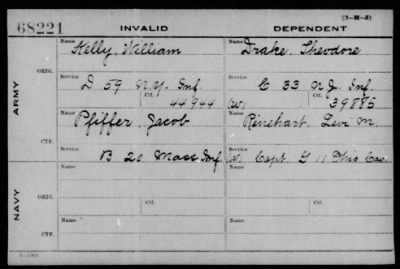 (3-H-2)
68221 INVALID DEPENDENT
ARMY
ORIG.
Name Kelly, William
Name Drake, Theodore
Service D 59 N.Y. Inf.
Ctf. 44944
Service C 33 N.J. Inf.
(W) Ctf. 39885
CTF.
Name Pfiffer, Jacob
Name Rinehart, Levi M.
Service B 20 Mass Inf
Service (W) Capt. G 11 Ohio Cav
NAVY
ORIG.
Name
Name
Service Ctf.
Service Ctf.
CTF.
Name
Name